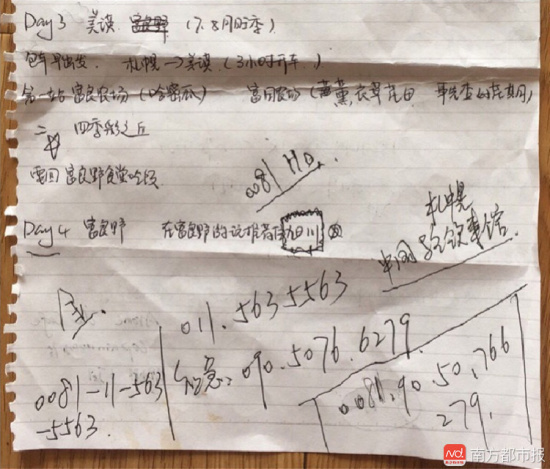 Day 3 美瑛 (7.8月旺季)
包车早出发. 札幌→美瑛 (3小时开车.)
第一站 富良农场 (哈密瓜) 富田农场 (薰衣草花田 事先查好花期)
二 四季彩之丘
富良野
0081 HO.
Day 4 富良野 在富良野的话推荐住旭川
札幌
中国总领事馆
011.563 5563
0081-11-563
-5563.
090.5076.6279.
0081.90.50.766
279.
南方都市报